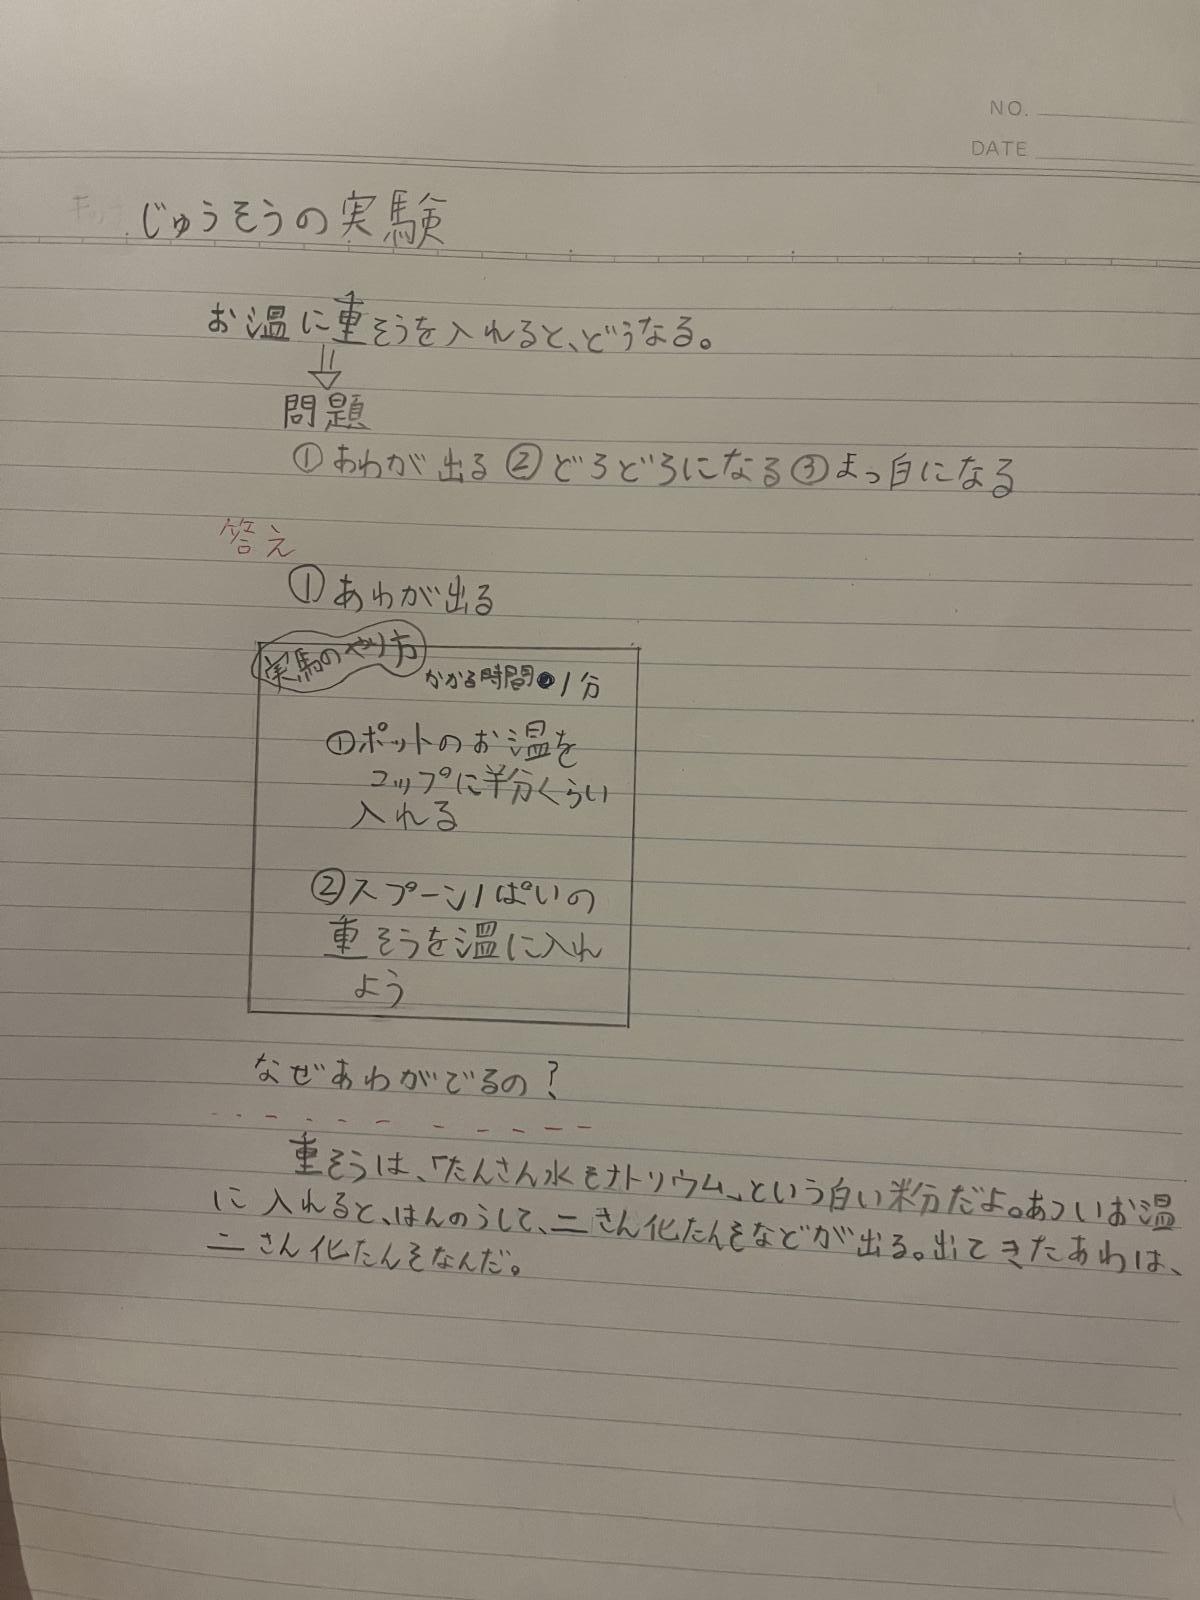 NO.
DATE
じゅうそうの実験
お温に重そうを入れると、どうなる。
問題
①あわが出る②どろどろになる③まっ白になる
答え
①あわが出る
実馬のやり方
かかる時間●1分
①ポットのお温を
コップに半分くらい
入れる
②スプーン1ぱいの
重そうを温に入れ
よう
なぜあわがでるの?
重そうは、「たんさん水そナトリウム」という白い半分だよ。あついお温
に入れると、はんのうして、二さん化たんそなどが出る。出てきたあわは、
二さん化たんそなんだ。